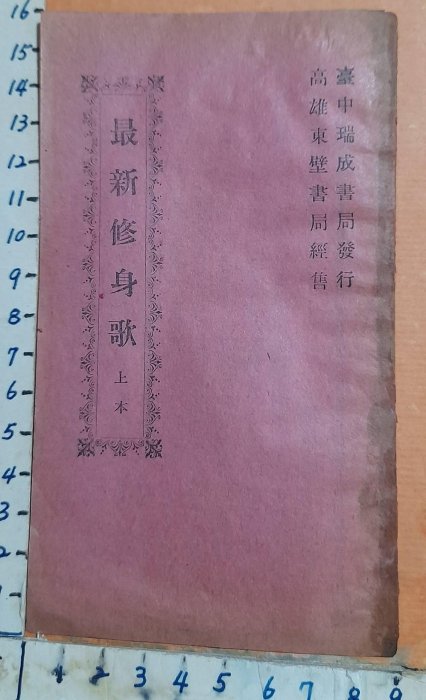 臺中瑞成書局發行
高雄東壁書局經售
最新修身歌 上本
16
15
14
13
12
11
10
9
8
7
6
5
4
3
2
1
1 2 3 4 5 6 7 8 9